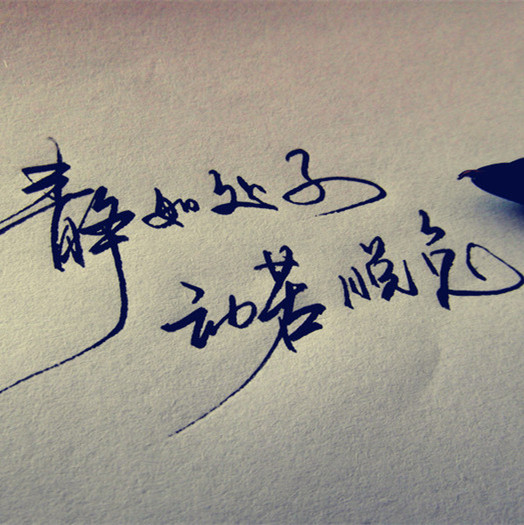 静如处子
动若脱兔